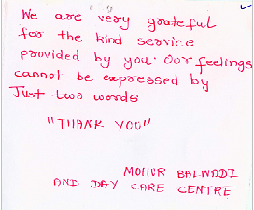 We are very grateful
for the kind service
provided by you. Our feelings
cannot be expressed by
Just two words
"THANK YOU"
BALWADI
AND DAY CARE CENTRE